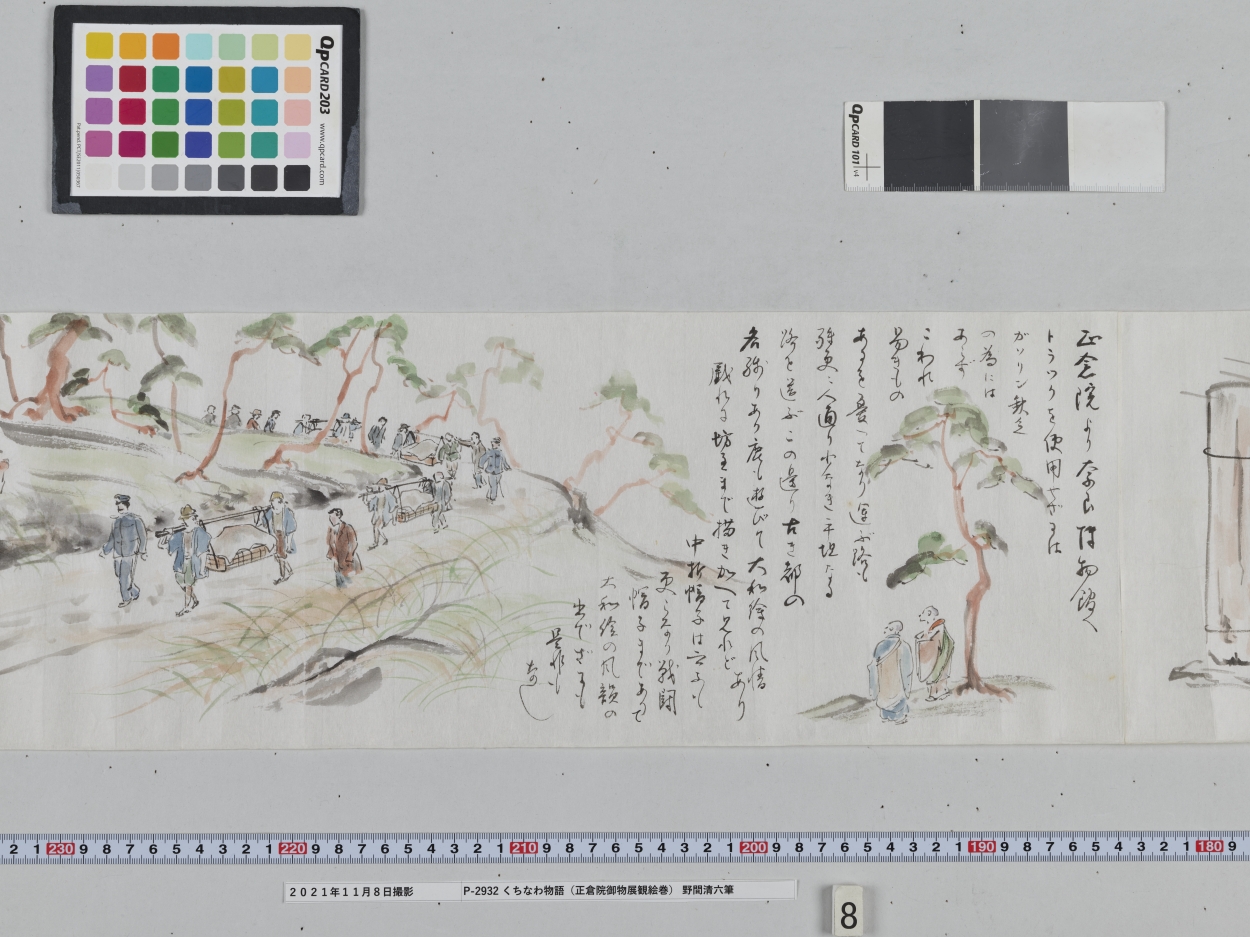 QPCARD 203
www.qpcard.com
QPCARD 101 v4
正倉院より奈良博物館へ
トラックを使用せざるは
ガソリン欠乏
の為には
あらず
こわれ
易きもの
あるを憂へてなり 運ぶ路も
殊更に人通り少なき平坦なる
路を選ぶこの辺り古き都の
名残りあり鹿も遊びて大和絵の風情
あり
戯れに坊主まで描き加へて見れど
中折帽子は
更らなり戦闘
帽子まであるで
大和絵の風韻の
出でざるも
是非も
なし
2 1 230 9 8 7 6 5 4 3 2 1 220 9 8 7 6 5 4 3 2 1 210 9 8 7 6 5 4 3 2 1 200 9 8 7 6 5 4 3 2 1 190 9 8 7 6 5 4 3 2 1 180 9
2021年11月8日撮影
P-2932 くちなわ物語（正倉院御物展観絵巻） 野間清六筆
8